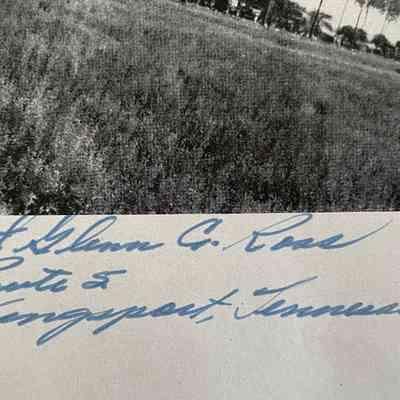 Glenn C. Ross
Route 5
Kingsport, Tennessee